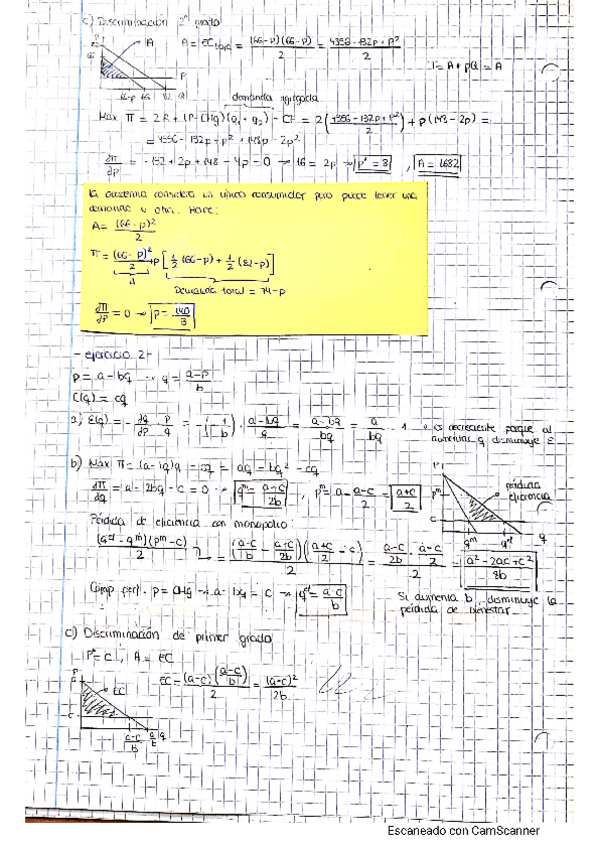 c) Discriminación 2º grado
A = EC = (66-p)(66-p)/2 = 4356-132p+p²/2
T = A + pQ = A
66-p 66 82 Q
demanda agregada
Max π = 2A + (P-CMg)(q1+q2) - CF = 2(4356-132p+p²/2) + p(148-2p) =
= 4356-132p+p²+148p-2p²
∂π/∂p = -132+2p+148-4p=0 → 16=2p → p*=8, A=1682
La academia considera un único consumidor pero puede tener una
demanda u otra. Hace:
A = (66-p)²/2
π = (66-p)²/2 + p[1/2(66-p)+1/2(82-p)]
A
Demanda total = 74-p
∂π/∂p = 0 → p = 140/3
- ejercicio 2 -
p = a-bq → q = a-p/b
C(q) = cq
a) E(q) = -dq/dp · p/q = -(-1/b) · a-bq/q = a-bq/bq = a/bq - 1 → es decreciente porque al
aumentar q disminuye E
b) Max π = (a-bq)q - cq = aq - bq² - cq
∂π/∂q = a-2bq-c=0 → q^m = a-c/2b, p^m = a - a-c/2 = a+c/2
pérdida
eficiencia
Pérdida de eficiencia con monopolio:
(q^cp - q^m)(p^m - c)/2 = (a-c/b - a-c/2b)(a+c/2 - c)/2 = a-c/2b · a-c/2/2 = a²-2ac+c²/8b
Comp perf. p = CMg → a-bq = c → q = a-c/b
Si aumenta b, disminuye la
pérdida de bienestar.
c) Discriminación de primer grado
P* = c, A = EC
EC = (a-c)(a-c/b)/2 = (a-c)²/2b
EC
a-c/b a/b q
Escaneado con CamScanner